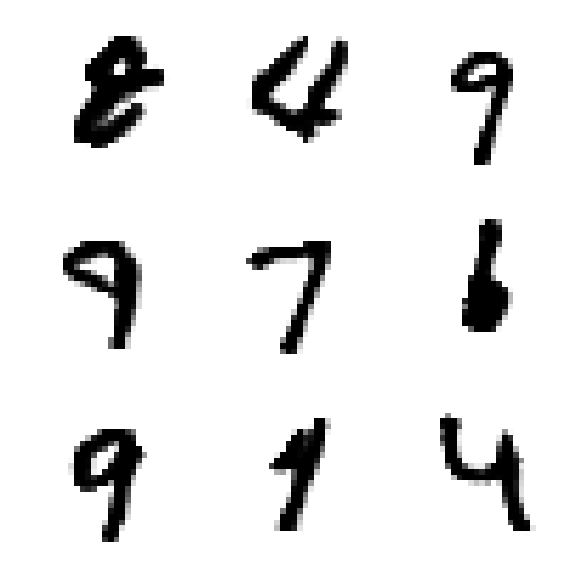 8 4 9
9 7 6
9 9 4